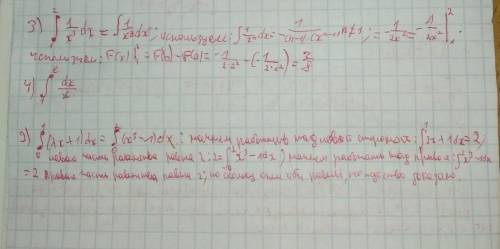 3) ∫₁² 1/x³ dx = ∫ 1/x³ dx; используем: ∫ 1/xⁿ dx = -1/((n-1)·xⁿ⁻¹), n≠1; = -1/2x² = -1/2x² |₁²
используем: F(x)| = F(b) - F(a) = -1/2·2² - (-1/2·1²) = 3/8
4) ∫ dx/x
2) ∫₀¹(2x+1)dx = ∫₀²(x³-1)dx; начнем работать над левой стороной: ∫₀¹ 2x+1dx = 2;
левая часть равенства равна 2: 2 = ∫₀² x³-1dx; начнем работать над правой: ∫₀² x³-1dx
= 2 правая часть равенства равна 2; обе равны, тождество доказано.